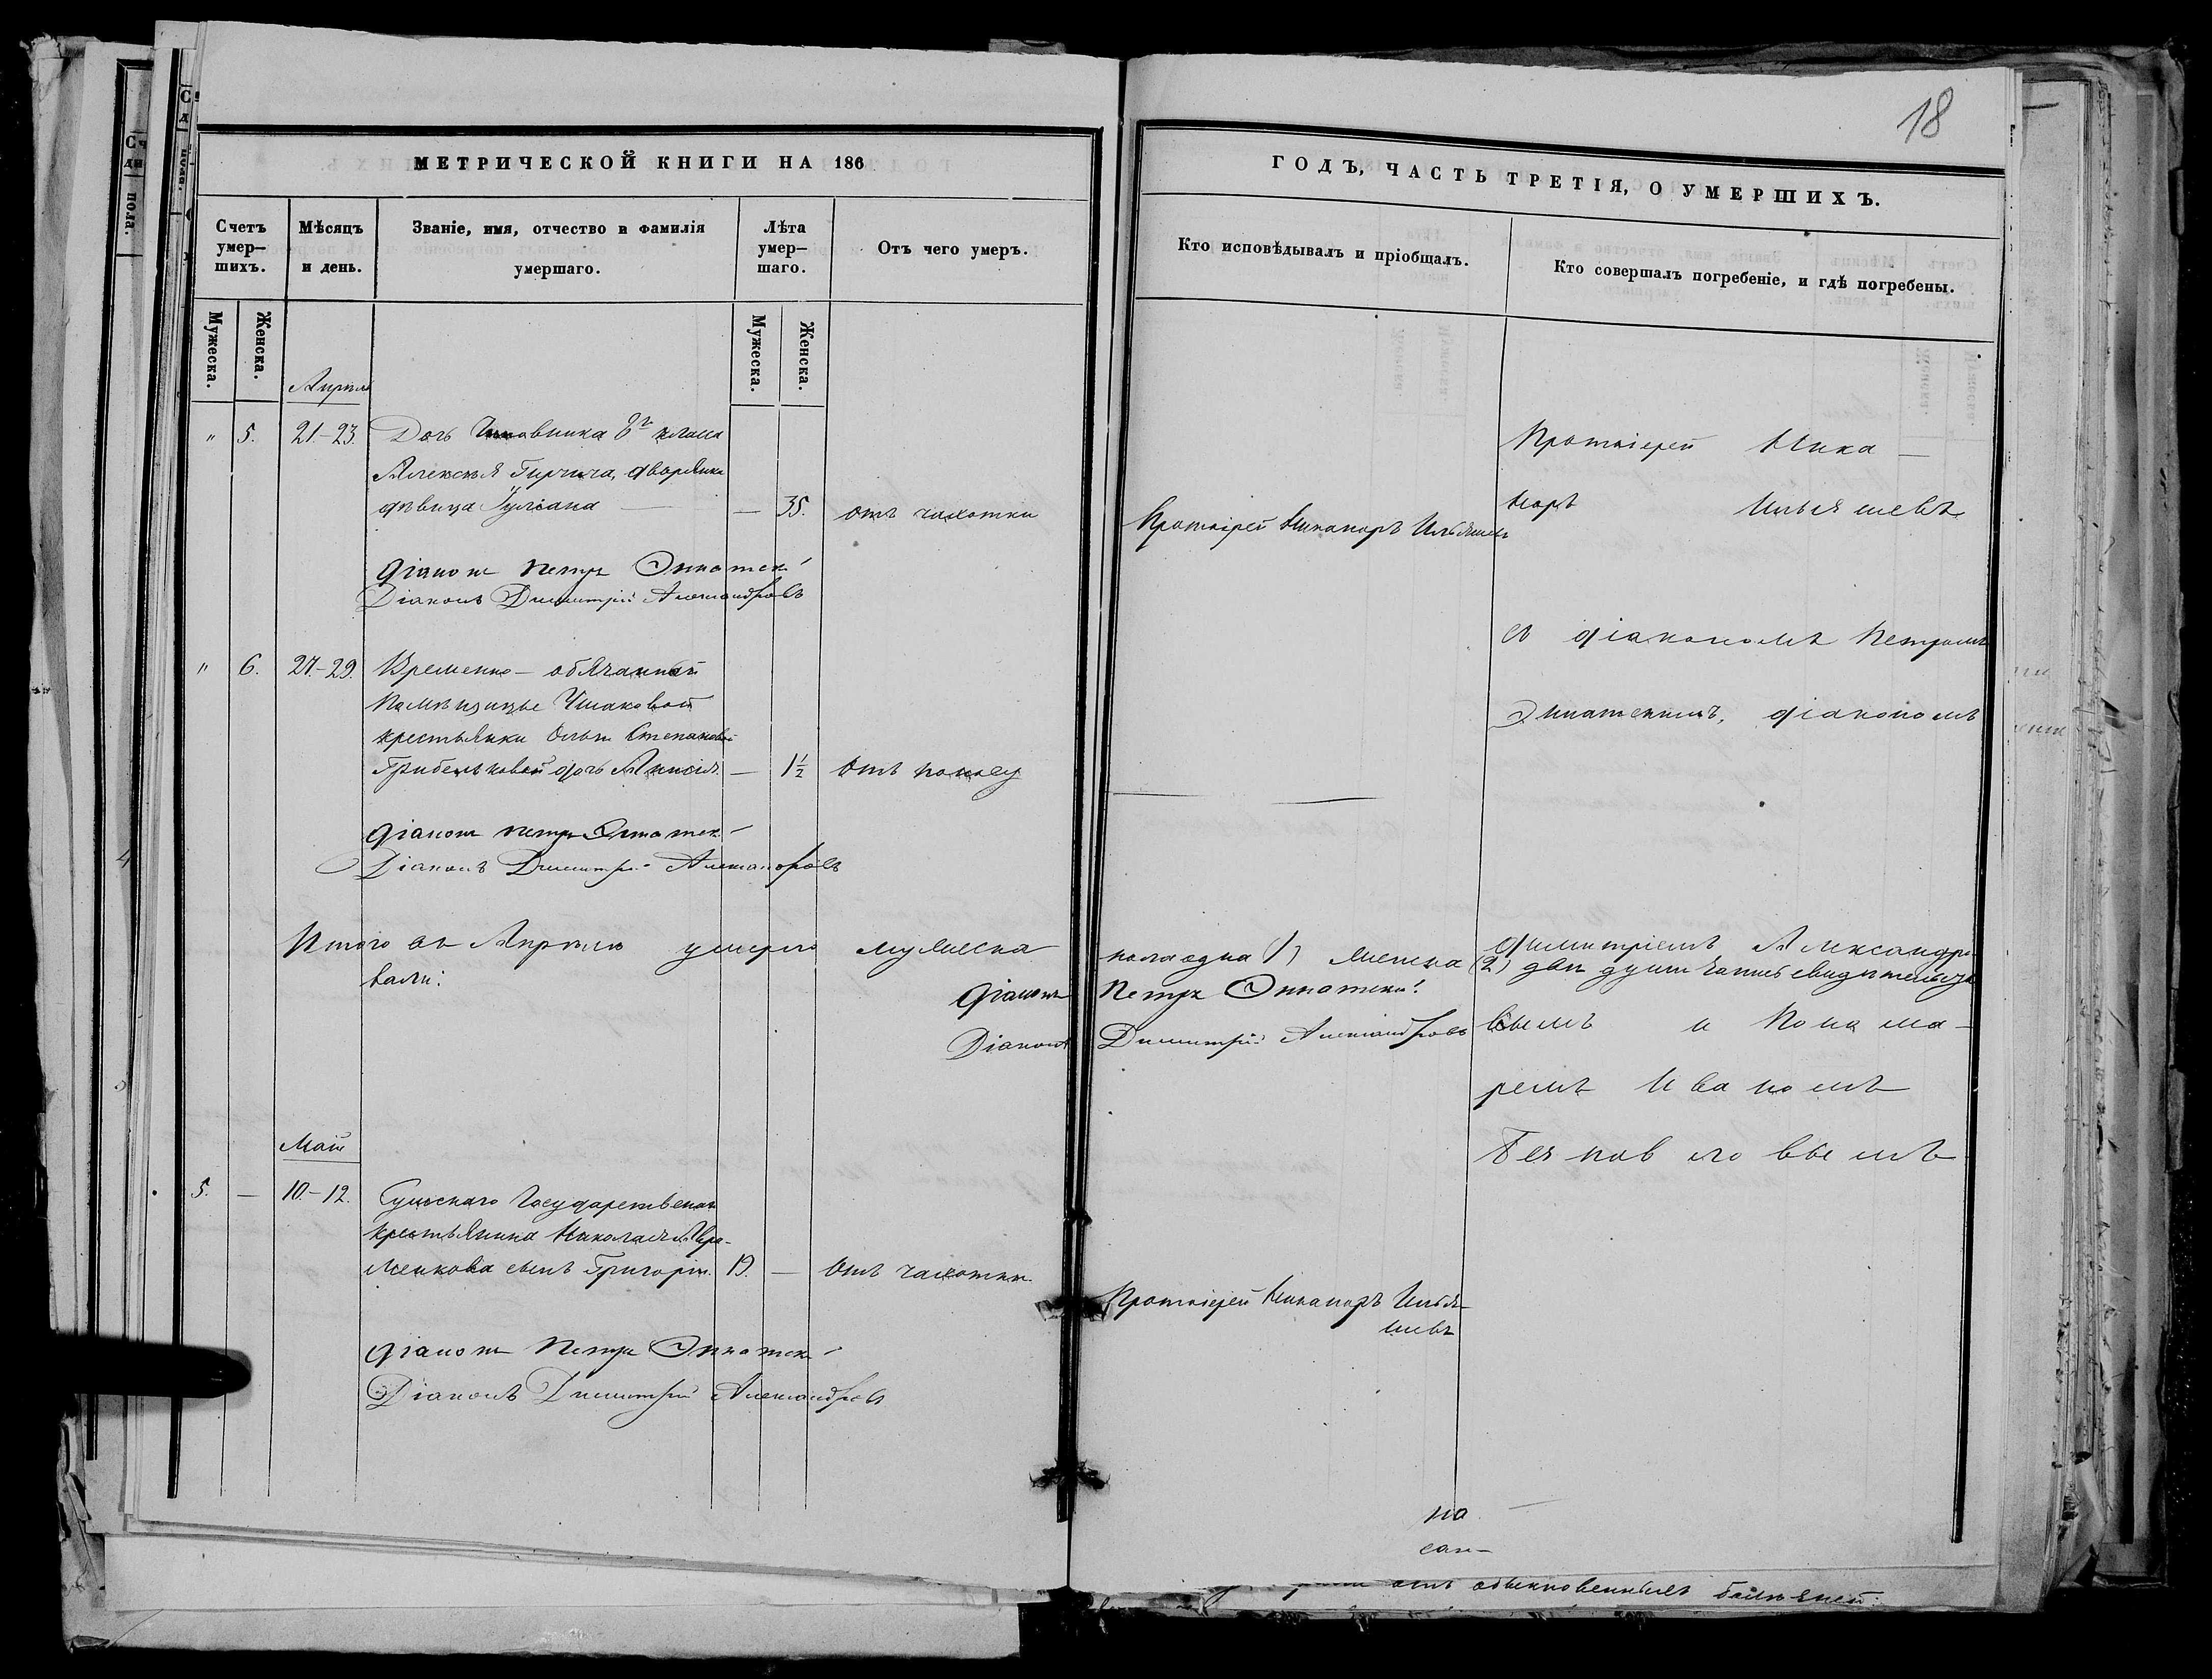 18
МЕТРИЧЕСКОЙ КНИГИ НА 186
Счетъ умер-шихъ.
Мѣсяцъ и день.
Званіе, имя, отчество и фамилія умершаго.
Лѣта умер-шаго.
Отъ чего умеръ.
Мужеска.
Женска.
Мужеска.
Женска.
Апрѣль
" 5. 21-23. Дочь Чиновника 8го класса
Алексѣя Гирича, дворянка
дѣвица Іуліана — — 35. отъ чахотки
Діаконъ Петръ
Діаконъ Димитрій Александровъ
" 6. 27-29. Временно-обязанной
помѣщицы Ушаковой
крестьянки Ольги Степановой
дочь — 1½ Отъ поносу
Діаконъ Петръ
Діаконъ Димитрій Александровъ
Итого въ Апрѣлѣ умерло мужеска
вали:
Діаконъ
Діаконъ
Май
5. — 10-12. Государственнаго
крестьянина Николая
сынъ Григорій. 19. — Отъ чахотки.
Діаконъ Петръ
Діаконъ Димитрій Александровъ
ГОДЪ, ЧАСТЬ ТРЕТІЯ, О УМЕРШИХЪ.
Кто исповѣдывалъ и пріобщалъ.
Кто совершалъ погребеніе, и гдѣ погребены.
Протоіерей Никаноръ Ильяшевъ
пола одна (1) женска (2) двѣ души
Петръ
Димитрій Александровъ
Протоіерей Никаноръ Илья-
шевъ
Протоіерей Ника-
норъ Ильяшевъ
съ діакономъ Петромъ
діакономъ
Димитріемъ Александро-
вымъ и Понома-
ремъ Иваномъ
на
отъ обыкновенныхъ болѣзней.